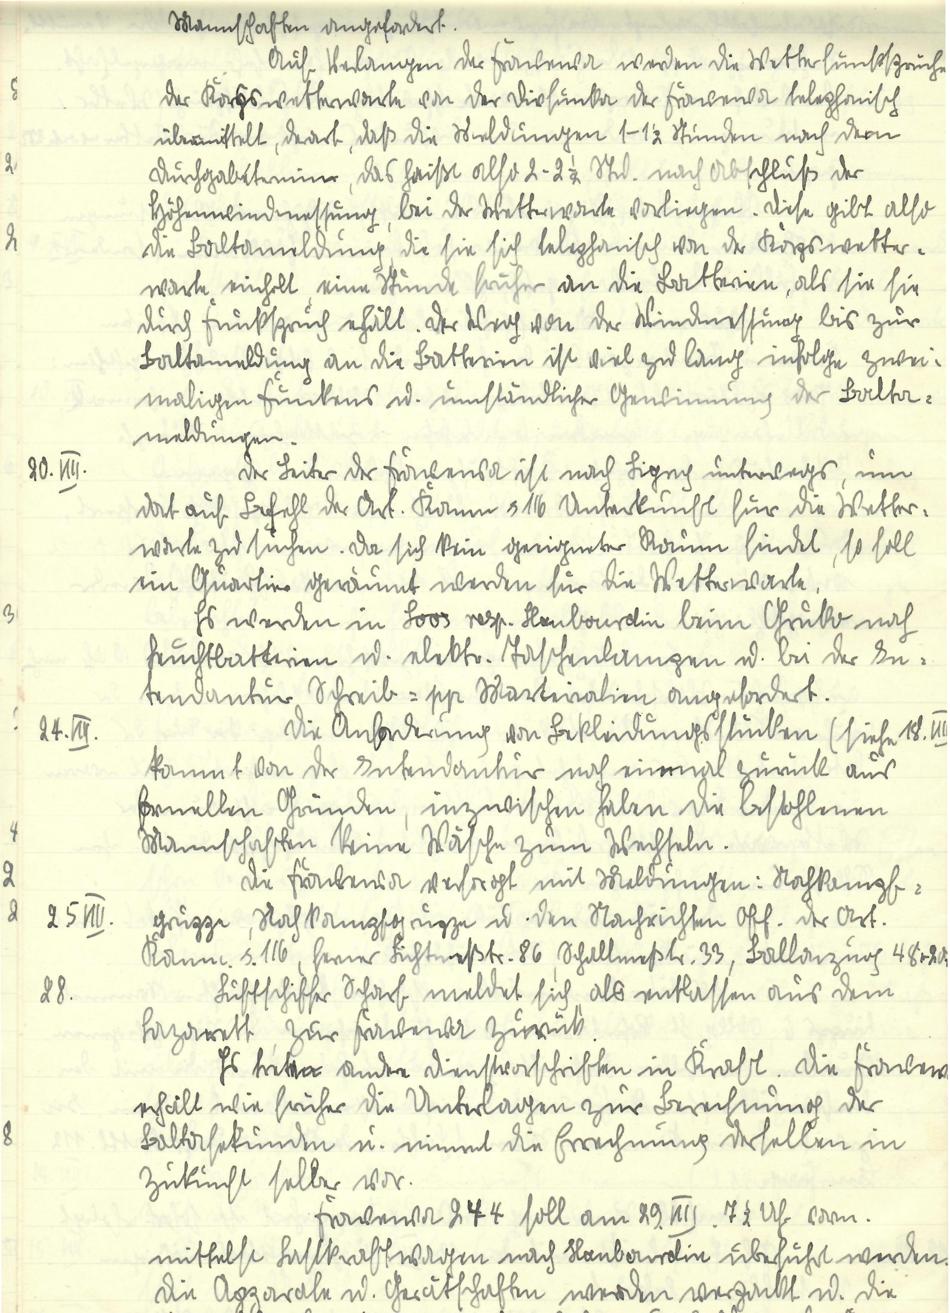 Mannschaften angefordert.
Auf Verlangen der Frawewa werden die Wetterfunksprüche
der Korpswetterwarte von der Divfunka der Frawewa telephonisch
übermittelt, derart, daß die Meldungen 1-1½ Stunden nach dem
Durchgabetermine, das heißt also 2-2½ Std. nach Abschluß der
Höhenwindmessung, bei der Wetterwarte vorliegen. Diese gibt also
die Baltameldung, die sie sich telephonisch von der Korpswetter-
warte einholt, eine Stunde früher an die Batterien, als sie sie
durch Funkspruch erhält. Der Weg von der Windmessung bis zur
Baltameldung an die Batterien ist viel zu lang infolge zwei-
maligen Funkens u. umständlicher Gewinnung der Balta-
meldungen.
20. III. Der Leiter der Frawewa ist nach Ligny unterwegs, um
dort auf Befehl der Art. Komm. 116 Unterkunft für die Wetter-
warte zu suchen. Da sich kein geeigneter Raum findet, so soll
ein Quartier geräumt werden für die Wetterwarte.
Es werden in Loos resp. Haubourdin beim Gruko noch
Leuchtbatterien u. elektr. Taschenlampen u. bei der In-
tendantur Schreib= pp. Materialien angefordert.
24. III. Die Anforderung von Bekleidungsstücken (siehe 18. III
kommt von der Intendantur noch einmal zurück aus
formellen Gründen, inzwischen haben die befohlenen
Mannschaften keine Wäsche zum Wechseln.
Die Frawewa versorgt mit Meldungen: Nahkampf-
25 III. gruppe, Nahkampfgruppe u. den Nachrichten Off. der Art.
Komm. 116, ferner Lichtmeßtr. 86, Schallmeßtr. 33, Ballonzug
28. Luftschiffer Scharf meldet sich als entlassen aus dem
Lazarett, zur Frawewa zurück.
Es treten andere Dienstvorschriften in Kraft. Die Frawewa
erhält wie früher die Unterlagen zur Berechnung der
Baltasekunden u. nimmt die Errechnung derselben in
Zukunft selber vor.
Frawewa 244 soll am 29. III. 7½ Uhr vorm.
mittelst Lastkraftwagen nach Haubourdin überführt werden.
Die Apparate u. Gerätschaften werden verpackt u. die